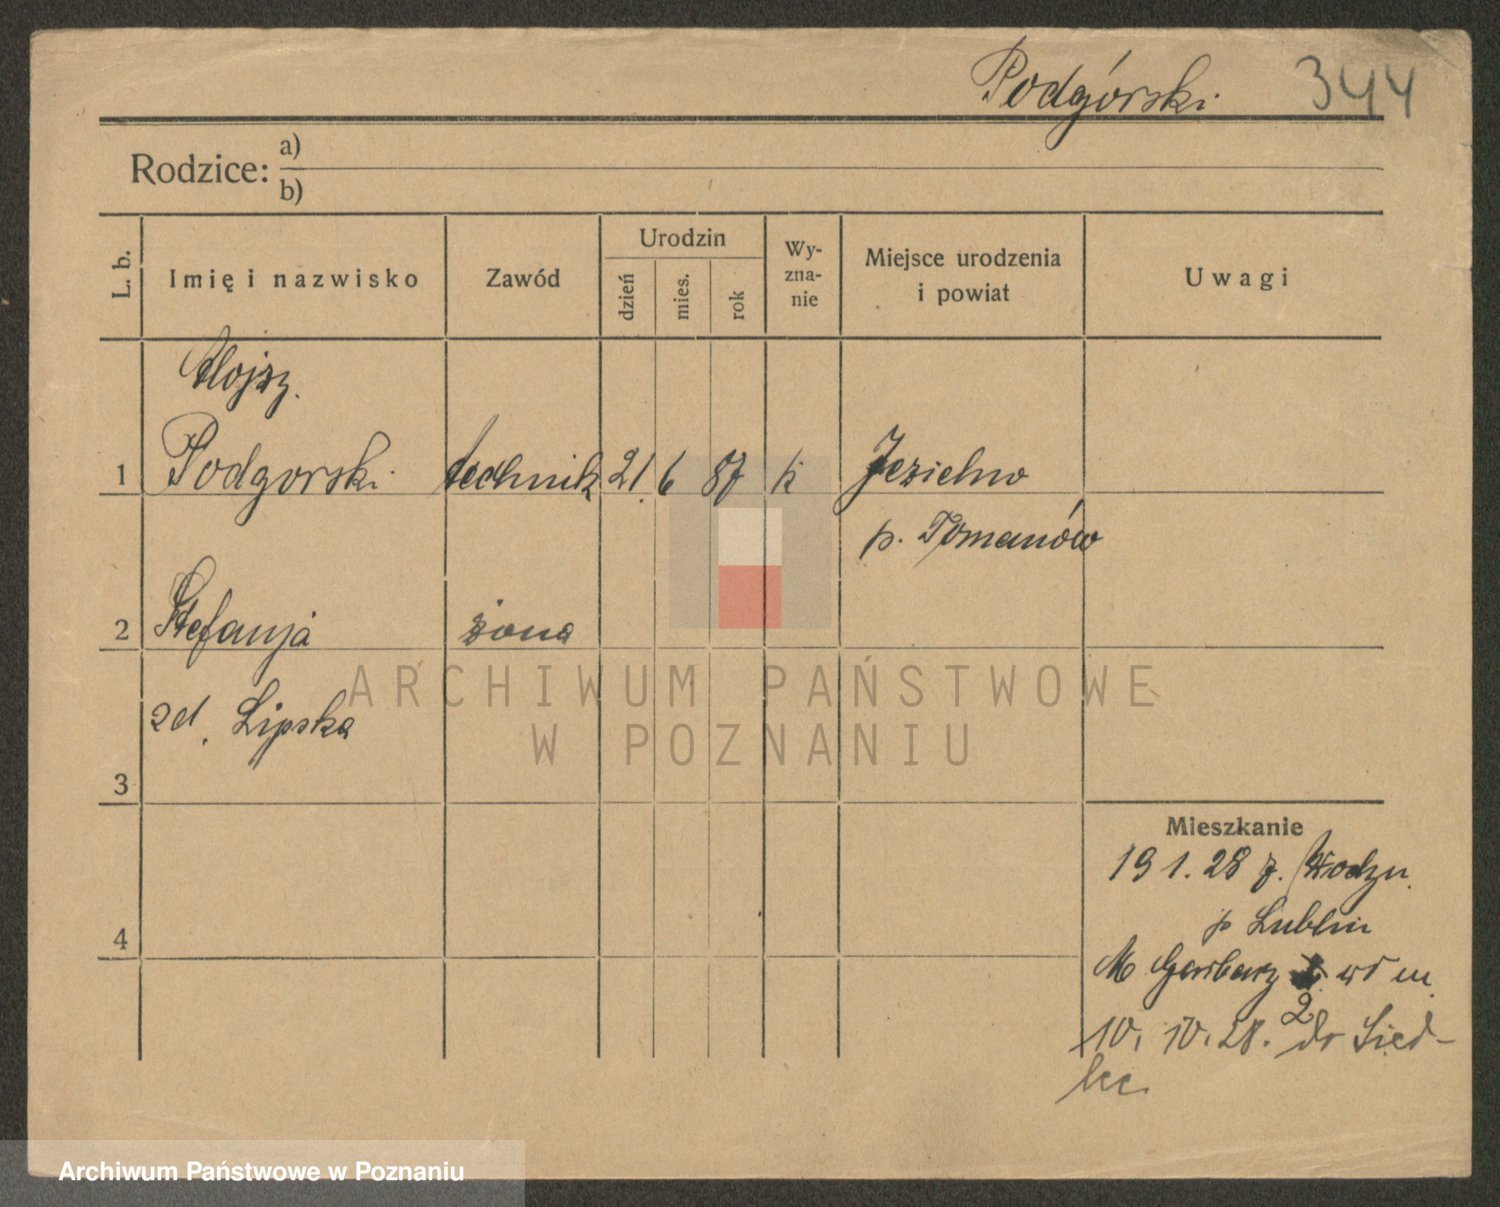 Podgórski 344
Rodzice: a)
b)
L. b. Imię i nazwisko Zawód Urodzin dzień mies. rok Wy-zna-nie Miejsce urodzenia i powiat Uwagi
Alojzy.
1 Podgorski technik 21. 6 87 k Jezielno
p. Tomanów
2 Stefanja żona
zd. Lipska
3
4
Mieszkanie
19 1. 28 z.
p Lublin
M Garbarz
2
10. 10. 28. do Sied-
lec.
ARCHIWUM PAŃSTWOWE
W POZNANIU
Archiwum Państwowe w Poznaniu